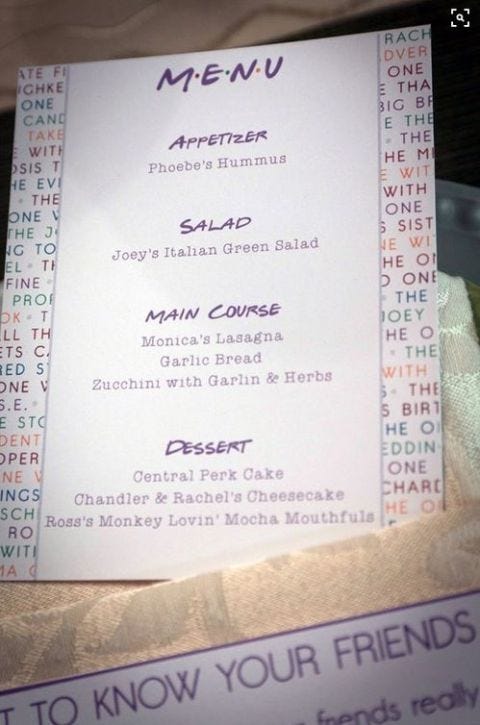 M·E·N·U
APPETIZER
Phoebe's Hummus
SALAD
Joey's Italian Green Salad
MAIN COURSE
Monica's Lasagna
Garlic Bread
Zucchini with Garlin & Herbs
DESSERT
Central Perk Cake
Chandler & Rachel's Cheesecake
Ross's Monkey Lovin' Mocha Mouthfuls
ATE
ONE
CAND
TAKE
WITH
OSIS T
HE EVI
THE
ONE
THE
NG TO
EL • TH
FINE
PROP
OK • T
ALL TH
ETS CA
RED S
ONE
S.E. •
E STO
DENT
OPER
ONE
INGS
SCH
RO
WITH
MA
RACH
ADVER
ONE
E THA
BIG BR
E THE
• THE
HE MI
E WIT
WITH
ONE
S SIST
NE WI
HE ON
D ONE
• THE
JOEY
HE O
• THE
WITH
S • THE
S BIRT
HE O
EDDIN
ONE
CHARD
HE O
T TO KNOW YOUR FRIENDS
friends really